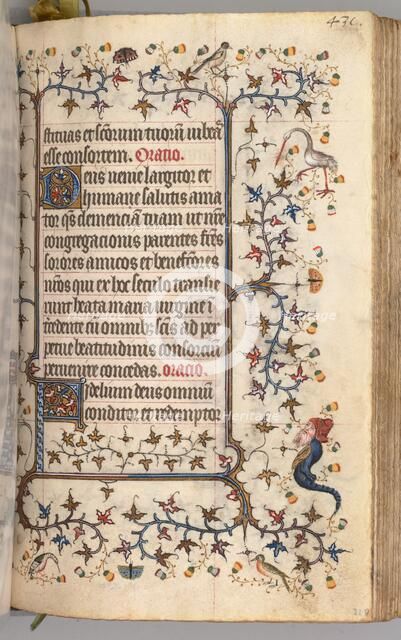 436.
stituas et scorum tuorum iubeas
esse consortem. Oratio.
Deus uenie largitor et
humane salutis ama
tor qs clemenciam tuam ut nre
congregacionis parentes fres
sorores amicos et benefcores
nros qui ex hoc seculo transie
runt beata maria uirgine i
tercedente cu omnibus scis ad per
petue beatitudinis consorciu
peruenire concedas. oratio.
Fidelium deus omnium
conditor et redemptor
Heritage